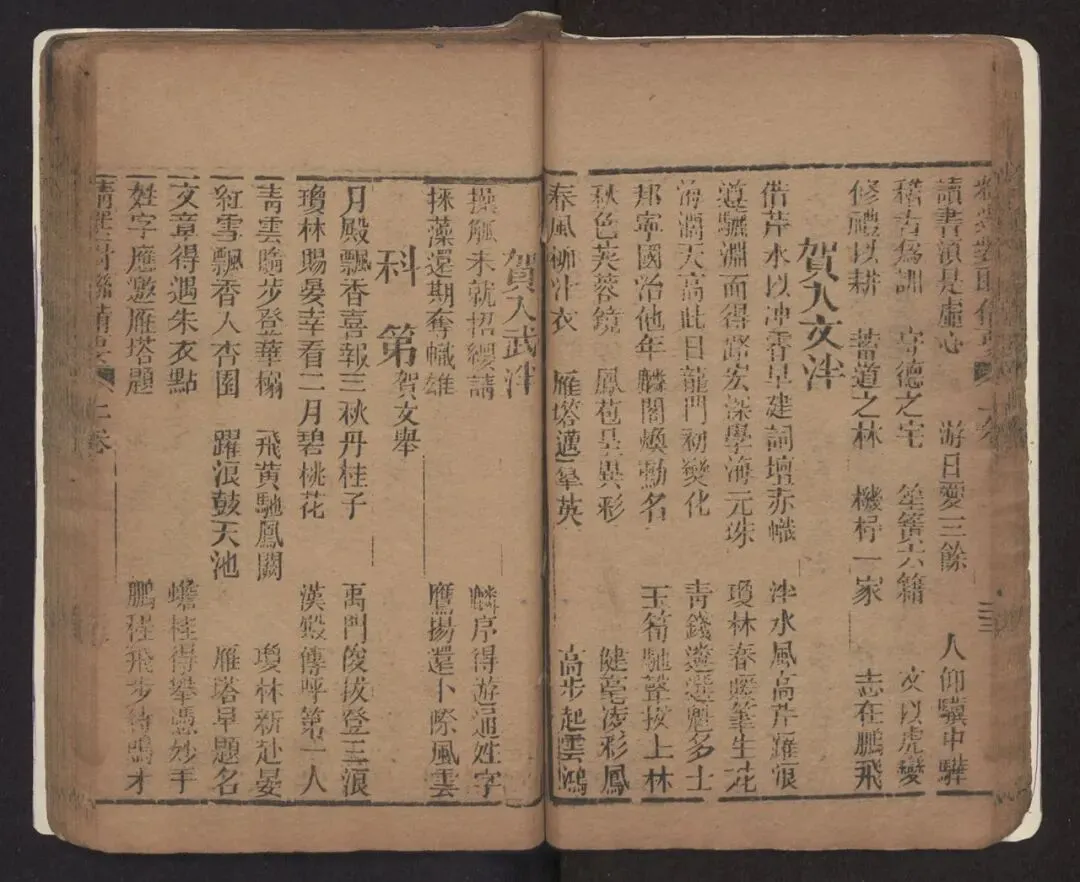 讀書須是虛心 游日愛三餘 人仰驥中驊
稽古爲訓 守德之宅 笙簧六籍 文以虎變
修禮以耕 蓄道之林 機杼一家 志在鵬飛
賀入文泮
借芹水以冲霄早建詞壇赤幟 泮水風高芹躍浪
遊驪淵而得路宏深學海元珠 瓊林春麗筆生花
海濶天高此日龍門初變化 靑錢選選魁多士
邦寧國治他年麟閣煥勳名 玉筍馳聲拔上林
秋色芙蓉鏡 鳳苞呈異彩 健毫凌彩鳳
春風柳汁衣 雁塔邁羣英 高步起雲鴻
賀入武泮
操觚未就招纓請 麟序得遊通姓字
掞藻還期奪幟雄 鷹揚還卜際風雲
科第 賀文舉
月殿飄香喜報三秋丹桂子 禹門俊拔登三浪
瓊林賜宴幸看二月碧桃花 漢殿傳呼第一人
靑雲瞻步登華榻 飛黃馳鳳闕 瓊林新赴宴
紅雪飄香人杏園 躍浪鼓天池 雁塔早題名
文章得遇朱衣點 蟾桂得攀憑妙手
姓字應邀雁塔題 鵬程飛步待鳴才
二卷